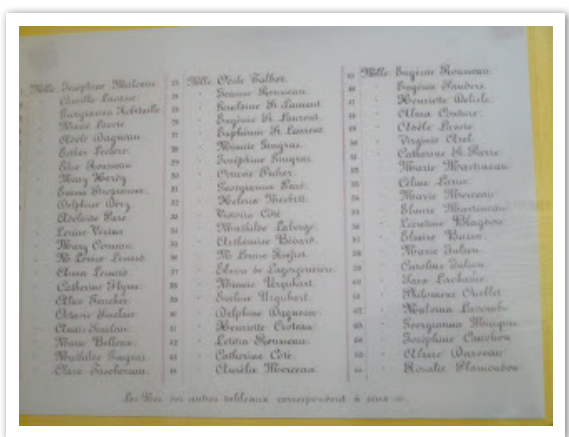 Mlle Joséphine Malouin
" Camille Lavoie
" Georgianna
" Marie Lavoie
" Adèle Dagneau
" Esther Leclerc
" Elise Rousseau
" Mary Hardy
" Emma
" Delphine Dery
" Adélaïde Paré
" Louise Verret
" Mary
" M. Louise Lemois
" Anna Lemois
" Catherine Flynn
" Alice
" Octavie Sinclair
" Anaïs Sinclair
" Marie Belleau
" Mathilde Gingras
" Clara
23 Mlle Odile Talbot
" Jeanne Rousseau
" St Laurent
" Eugénie St Laurent
27 " Euphémie St Laurent
28 " Minnie Gingras
29 " Joséphine Gingras
30 " Octavie Picher
31 " Georgianna Paré
32 " Helena Nesbitt
33 " Victoria Côté
34 " Mathilde Laberge
35 " Arthémise Bédard
36 " M. Louise
37 " Elmire de Lagorgendière
38 " Minnie Urquhart
39 " Emeline Urquhart
40 " Delphine Dagneau
41 " Henriette Croteau
42 " Letitia Rousseau
43 " Catherine Côté
44 " Aurélie Morceau
45 Mlle Eugénie Rousseau
46 " Eugénie
47 " Henriette Delisle
48 " Alma Couture
49 " Adèle Lavoie
50 " Virginie Arel
51 " Catherine St Pierre
52 " Marie Martineau
53 " Céline Larue
54 " Marie Morceau
55 " Elmire Martineau
56 " Léontine
57 " Elmire Bazin
58 " Marie Julien
59 " Caroline Julien
60 " Sara Lachance
61 " Philomène Ouellet
62 " Malvina
63 " Georgianna
64 " Joséphine Cauchon
65 " Alzire Darveau
66 " Rosalie Plamondon
Les Nos. des autres tableaux correspondent à ceux-ci.